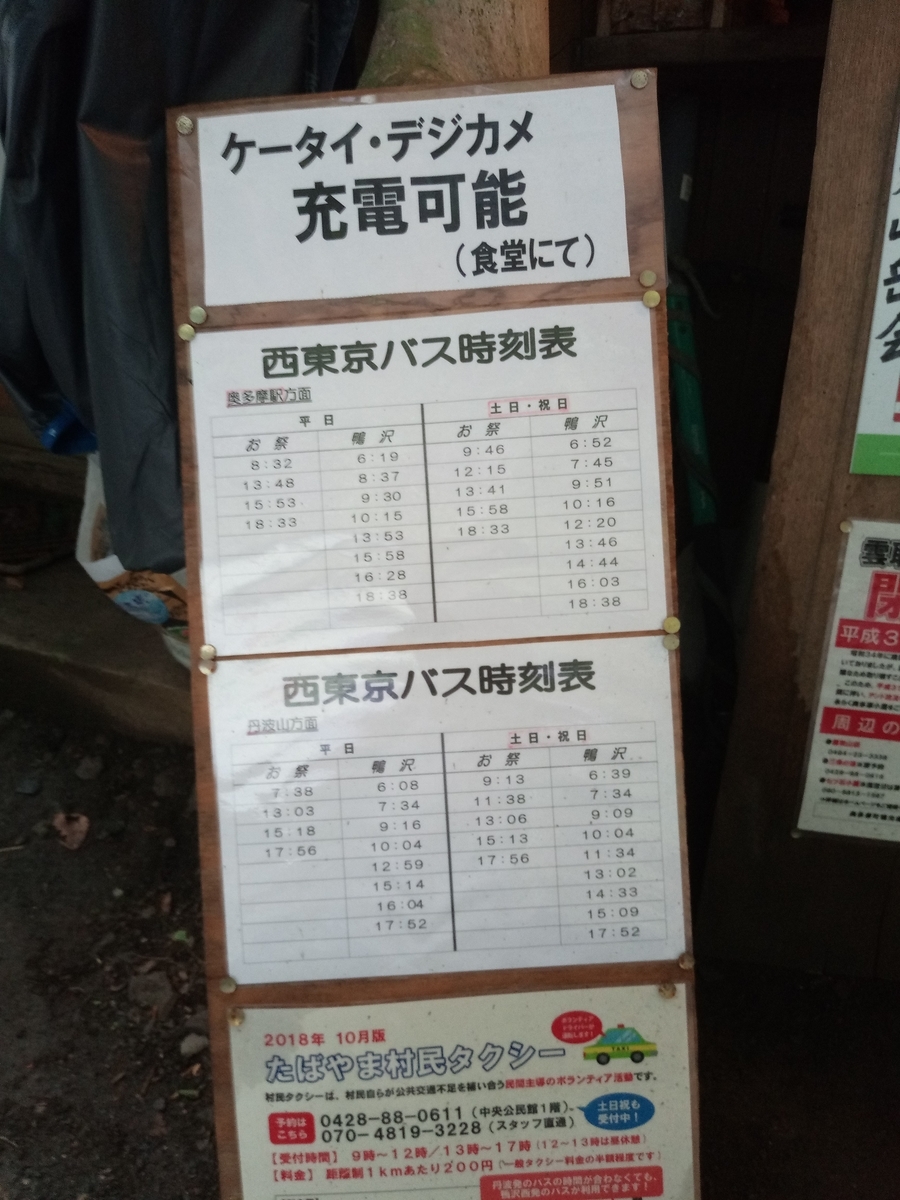 ケータイ・デジカメ
充電可能
(食堂にて)
西東京バス時刻表
奥多摩駅方面
平日 土日・祝日
お祭 鴨沢 お祭 鴨沢
8:32 6:19 9:46 6:52
13:48 8:37 12:15 7:45
15:53 9:30 13:41 9:51
18:33 10:15 15:58 10:16
13:53 18:33 12:20
15:58 13:46
16:28 14:44
18:38 16:03
18:38
西東京バス時刻表
丹波山方面
平日 土日・祝日
お祭 鴨沢 お祭 鴨沢
7:38 6:08 9:13 6:39
13:03 7:34 11:38 7:34
15:18 9:16 13:06 9:09
17:56 10:04 15:13 10:04
12:59 17:56 11:34
15:14 13:02
16:04 14:33
17:52 15:09
17:52
2018年 10月版
ボランティア
ドライバーが
たばやま村民タクシー
TAXI
村民タクシーは、村民自らが公共交通不足を補い合う民間主導のボランティア活動です。
予約は
こちら
0428-88-0611(中央公民館1階)
070-4819-3228(スタッフ直通)
土日祝も
受付中!
【受付時間】 9時~12時/13時~17時(12~13時は昼休憩)
【料金】 距離制1kmあたり200円(一般タクシー料金の半額程度です)
丹波発のバスの時間が合わなくても、
鴨沢西発のバスが利用できます!
平成3
周辺の